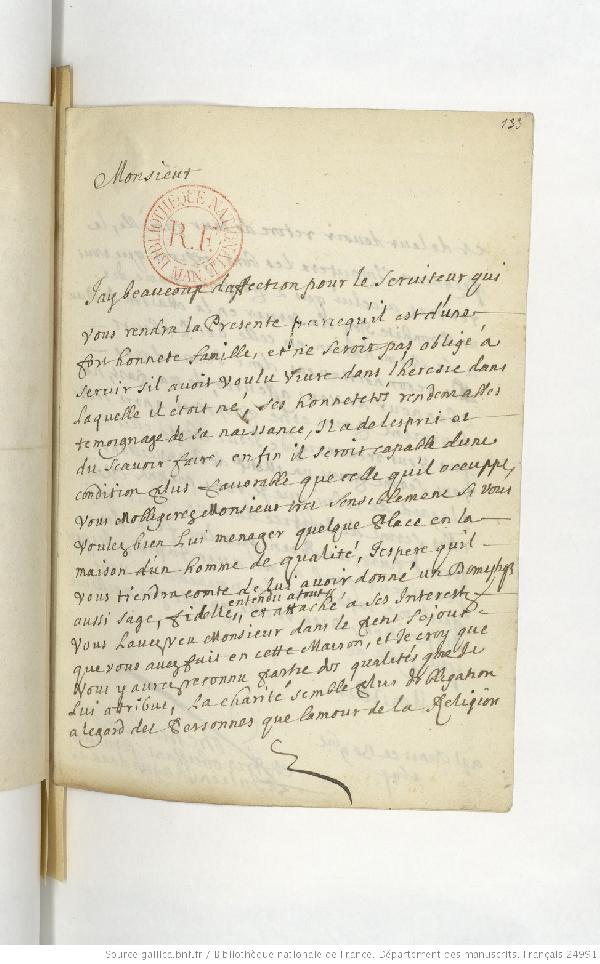 133
Monsieur
BIBLIOTHEQUE NATIONALE
R.F.
MAN.
Jay beaucoup daffection pour le Serviteur qui
vous rendra la Presente parcequil est d'une
fort honnete famille, et ne seroit pas obligé à
servir sil avoit voulu vivre dans lheresie dans
laquelle il étoit né, ses honnetetés rendent assés
temoignage de sa naissance, Il a de lesprit et
du scavoir faire, enfin il seroit capable d'une
condition plus favorable que celle quil occuppe,
vous mobligerez Monsieur tres sensiblement si vous
voulez bien lui menager quelque Place en la
maison dun homme de qualité, Jespere quil
vous tiendra comte de lui avoir donné un Domestiq
aussi sage, fidelle, entendu à tout, et attaché à ses Interests
vous lavez veu Monsieur dans le petit Sejour
que vous avez fait en cette Maison, et Je croy que
vous y aurez reconnu partie des qualités que Je
lui atribue, la charité semble plus dobligation
a legard des Personnes que lamour de la Religion
Source gallica.bnf.fr / Bibliothèque nationale de France. Département des manuscrits. Français 24991